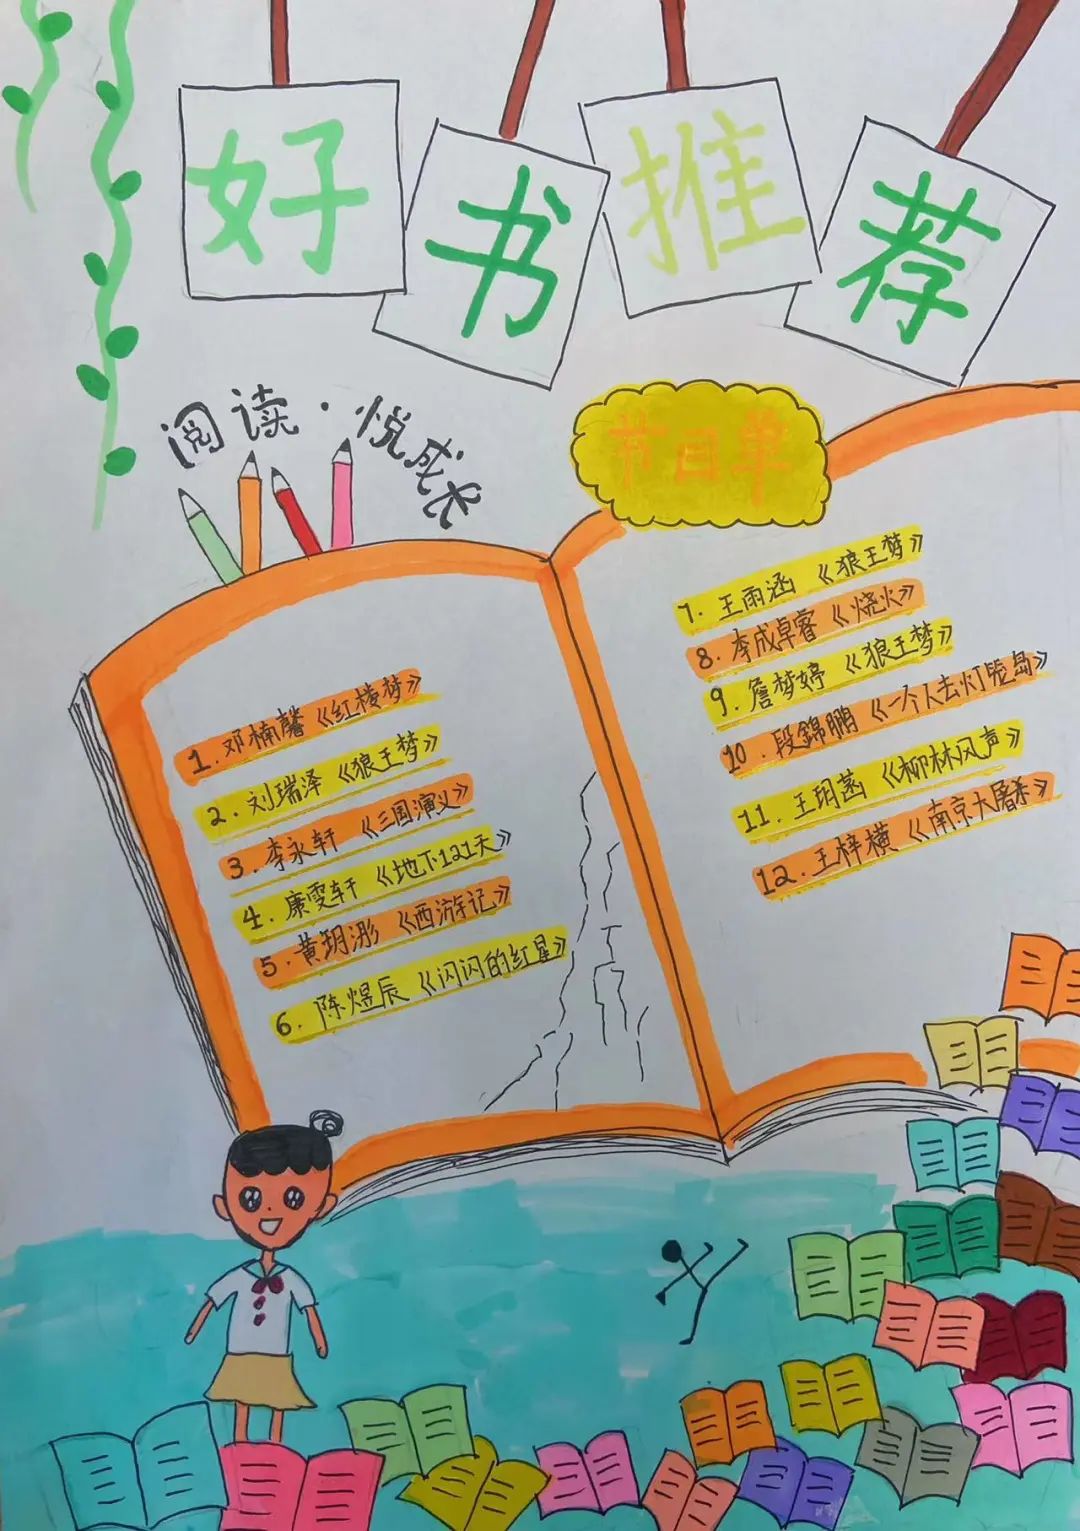 好书推荐
阅读·悦成长
节目单
1. 邓楠馨《红楼梦》
2. 刘瑞泽《狼王梦》
3. 李永轩《三国演义》
4. 康雯轩《地下121天》
5. 黄玥浵《西游记》
6. 陈煜辰《闪闪的红星》
7. 王雨涵《狼王梦》
8. 李成卓睿《烧火》
9. 詹梦婷《狼王梦》
10. 段錦鹏《一个人去灯笼岛》
11. 王玥菡《柳林风声》
12. 王梓横《南京大屠杀》